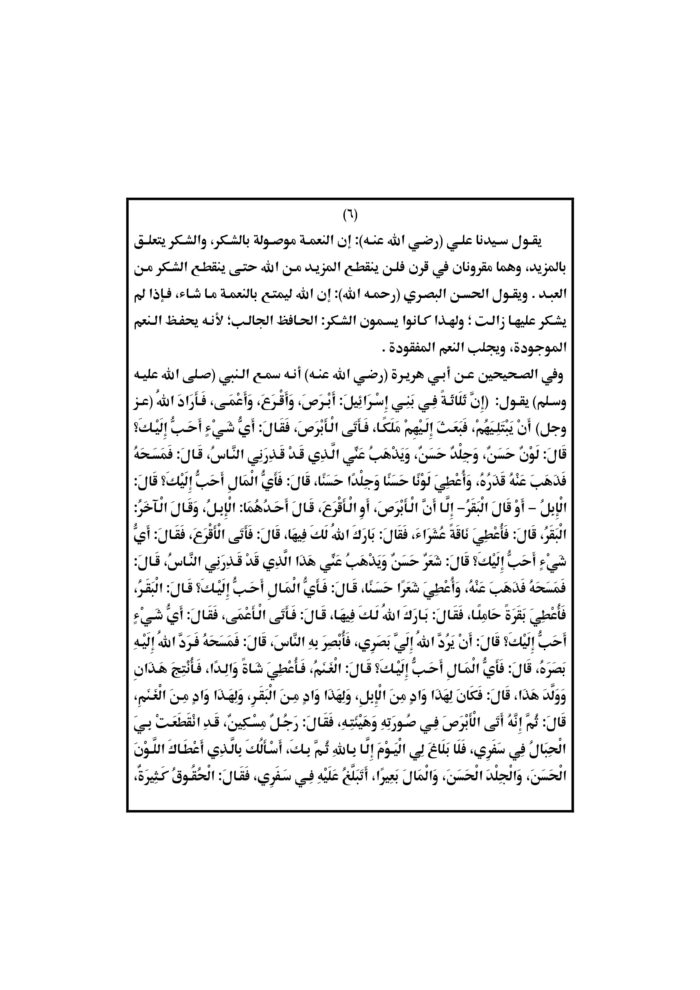 (٦)
يقول سيدنا علي (رضي الله عنه): إن النعمة موصولة بالشكر، والشكر يتعلق
بالمزيد، وهما مقرونان في قرن فلن ينقطع المزيد من الله حتى ينقطع الشكر من
العبد . ويقول الحسن البصري (رحمه الله): إن الله ليمتع بالنعمة ما شاء، فإذا لم
يشكر عليها زالت ؛ ولهذا كانوا يسمون الشكر: الحافظ الجالب؛ لأنه يحفظ النعم
الموجودة، ويجلب النعم المفقودة .
وفي الصحيحين عن أبي هريرة (رضي الله عنه) أنه سمع النبي (صلى الله عليه
وسلم) يقول: (إِنَّ ثَلَاثَةً فِي بَنِي إِسْرَائِيلَ: أَبْرَصَ، وَأَقْرَعَ، وَأَعْمَى، فَأَرَادَ اللهُ (عز
وجل) أَنْ يَبْتَلِيَهُمْ، فَبَعَثَ إِلَيْهِمْ مَلَكًا، فَأَتَى الْأَبْرَصَ، فَقَالَ: أَيُّ شَيْءٍ أَحَبُّ إِلَيْكَ؟
قَالَ: لَوْنٌ حَسَنٌ، وَجِلْدٌ حَسَنٌ، وَيَذْهَبُ عَنِّي الَّذِي قَدْ قَذِرَنِي النَّاسُ، قَالَ: فَمَسَحَهُ
فَذَهَبَ عَنْهُ قَذَرُهُ، وَأُعْطِيَ لَوْنًا حَسَنًا وَجِلْدًا حَسَنًا، قَالَ: فَأَيُّ الْمَالِ أَحَبُّ إِلَيْكَ؟ قَالَ:
الْإِبِلُ – أَوْ قَالَ الْبَقَرُ– إِلَّا أَنَّ الْأَبْرَصَ، أَوِ الْأَقْرَعَ، قَالَ أَحَدُهُمَا: الْإِبِلُ، وَقَالَ الْآخَرُ:
الْبَقَرُ، قَالَ: فَأُعْطِيَ نَاقَةً عُشَرَاءَ، فَقَالَ: بَارَكَ اللهُ لَكَ فِيهَا، قَالَ: فَأَتَى الْأَقْرَعَ، فَقَالَ: أَيُّ
شَيْءٍ أَحَبُّ إِلَيْكَ؟ قَالَ: شَعَرٌ حَسَنٌ وَيَذْهَبُ عَنِّي هَذَا الَّذِي قَدْ قَذِرَنِي النَّاسُ، قَالَ:
فَمَسَحَهُ فَذَهَبَ عَنْهُ، وَأُعْطِيَ شَعَرًا حَسَنًا، قَالَ: فَأَيُّ الْمَالِ أَحَبُّ إِلَيْكَ؟ قَالَ: الْبَقَرُ،
فَأُعْطِيَ بَقَرَةً حَامِلًا، فَقَالَ: بَارَكَ اللهُ لَكَ فِيهَا، قَالَ: فَأَتَى الْأَعْمَى، فَقَالَ: أَيُّ شَيْءٍ
أَحَبُّ إِلَيْكَ؟ قَالَ: أَنْ يَرُدَّ اللهُ إِلَيَّ بَصَرِي، فَأُبْصِرَ بِهِ النَّاسَ، قَالَ: فَمَسَحَهُ فَرَدَّ اللهُ إِلَيْهِ
بَصَرَهُ، قَالَ: فَأَيُّ الْمَالِ أَحَبُّ إِلَيْكَ؟ قَالَ: الْغَنَمُ، فَأُعْطِيَ شَاةً وَالِدًا، فَأُنْتِجَ هَذَانِ
وَوَلَّدَ هَذَا، قَالَ: فَكَانَ لِهَذَا وَادٍ مِنَ الْإِبِلِ، وَلِهَذَا وَادٍ مِنَ الْبَقَرِ، وَلِهَذَا وَادٍ مِنَ الْغَنَمِ،
قَالَ: ثُمَّ إِنَّهُ أَتَى الْأَبْرَصَ فِي صُورَتِهِ وَهَيْئَتِهِ، فَقَالَ: رَجُلٌ مِسْكِينٌ، قَدِ انْقَطَعَتْ بِيَ
الْحِبَالُ فِي سَفَرِي، فَلَا بَلَاغَ لِي الْيَوْمَ إِلَّا بِاللهِ ثُمَّ بِكَ، أَسْأَلُكَ بِالَّذِي أَعْطَاكَ اللَّوْنَ
الْحَسَنَ، وَالْجِلْدَ الْحَسَنَ، وَالْمَالَ بَعِيرًا، أَتَبَلَّغُ عَلَيْهِ فِي سَفَرِي، فَقَالَ: الْحُقُوقُ كَثِيرَةٌ،